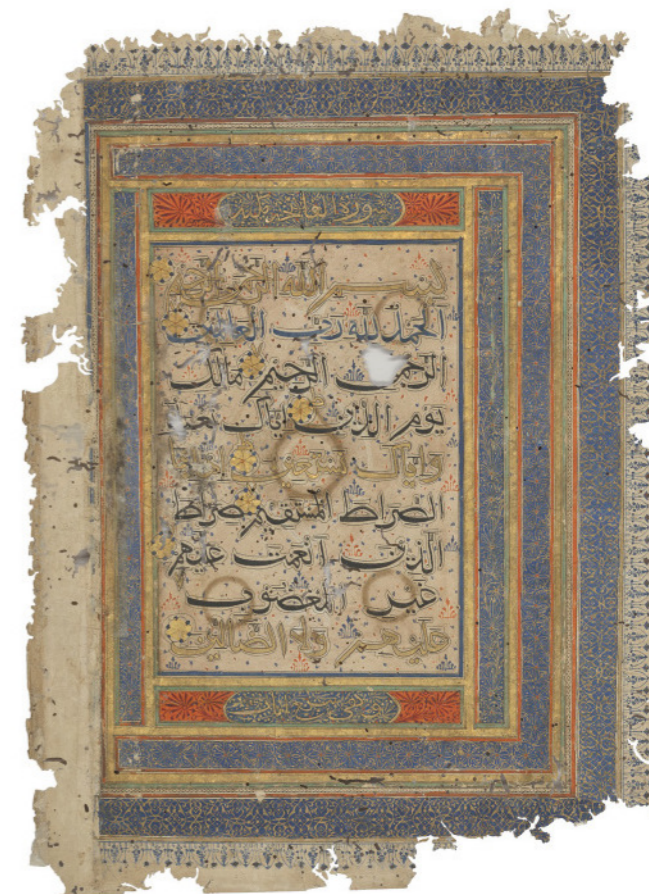 سورة الفاتحة
بسم الله الرحمن الرحيم
الحمد لله رب العالمين
الرحمن الرحيم مالك
يوم الدين اياك نعبد
واياك نستعين اهدنا
الصراط المستقيم صراط
الذين انعمت عليهم
غير المغضوب
عليهم ولا الضالين